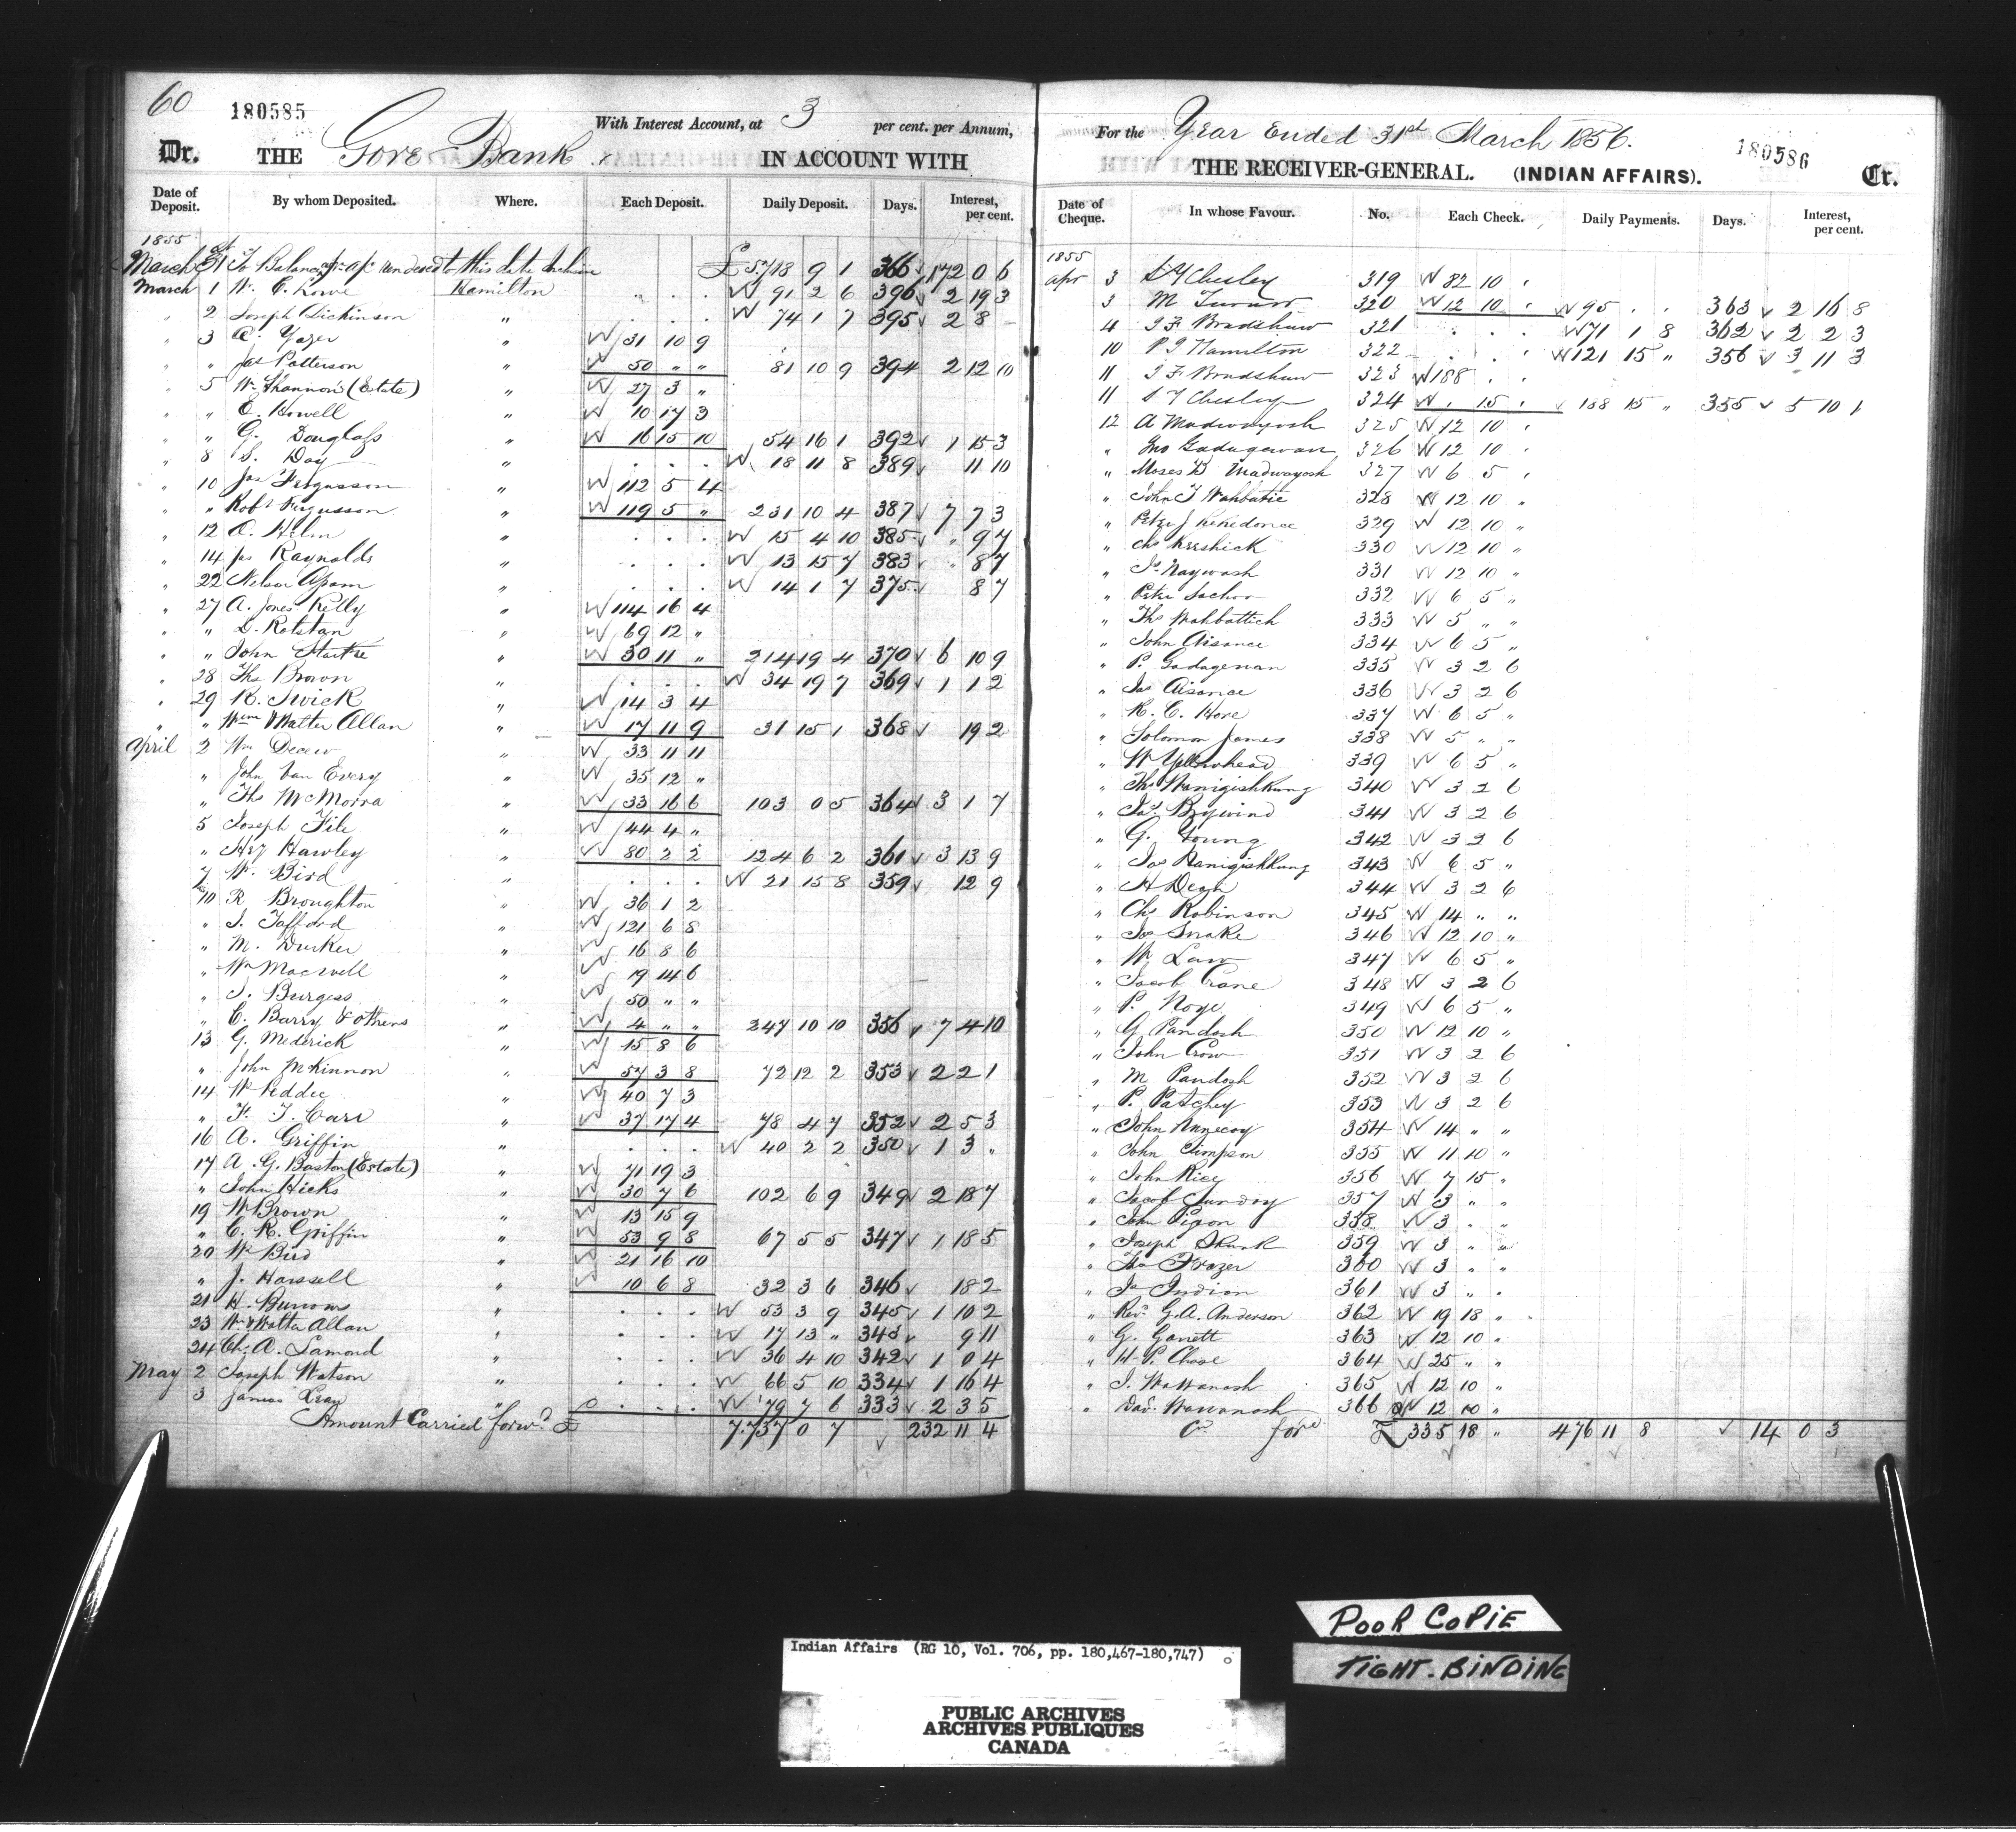 60
180585
With Interest Account, at 3 per cent. per Annum,
Dr. THE Gore Bank IN ACCOUNT WITH
Date of Deposit. By whom Deposited. Where. Each Deposit. Daily Deposit. Days. Interest, per cent.
1855
March 31st To Balance to this date £ 5718 9 1 366 172 0 6
March 1 W. C. Lowe Hamilton 91 2 6 396 2 19 3
" 2 Joseph Dickinson " 74 1 7 395 2 8 -
" 3 " 31 10 9
" " Jas Patterson " 50 " " 81 10 9 394 2 12 10
" 5 Wm Shannon's (Estate) " 27 3 "
" " E. Howell " 10 17 3
" " G. Douglass " 16 15 10 54 16 1 392 1 15 3
" 8 S. Day " 18 11 8 389 11 10
" 10 Jas Fergusson " 112 5 4
" " Robt Fergusson " 119 5 " 231 10 4 387 7 7 3
" 12 O. Helm " 15 4 10 385 " 9 7
" 14 Jas Raynolds " 13 15 7 383 " 8 7
" 22 Nelson " 14 1 7 375 8 7
" 27 A. Jones Kelly " 114 16 4
" " D. Rolstan " 69 12 "
" " John " 30 11 " 214 19 4 370 6 10 9
" 28 Ths Brown " 34 19 7 369 1 1 2
" 29 K. Swick " 14 3 4
" " Wm & Walter Allan " 17 11 9 31 15 1 368 19 2
April 2 Wm Decew " 33 11 11
" John Van Every " 35 12 "
" Ths McMorra " 33 16 6 103 0 5 364 3 1 7
5 Joseph File " 44 4 "
" Hawley " 80 2 2 124 6 2 361 3 13 9
7 W. Bird " 21 15 8 359 12 9
10 R Broughton " 36 1 2
" J. Tafford " 121 6 8
" M. Durker " 16 8 6
" Wm " 19 14 6
" J. Burgess " 50 " "
" C. Barry & others " 4 " " 247 10 10 356 7 4 10
13 G. Mederick " 15 8 6
" John McKinnon " 57 3 8 72 12 2 353 2 2 1
14 W. " 40 7 3
" F. T. Carr " 37 17 4 78 4 7 352 2 5 3
16 A. Griffin " 40 2 2 350 1 3 "
17 A. G. Baston (Estate) " 71 19 3
" John Hicks " 30 7 6 102 6 9 349 2 18 7
19 W Brown " 13 15 9
" C. R. Griffin " 53 9 8 67 5 5 347 1 18 5
20 Wm Bird " 21 16 10
" J. Hassell " 10 6 8 32 3 6 346 18 2
21 H. Burrows " 53 3 9 345 1 10 2
23 Wm & Walter Allan " 17 13 " 343 9 11
24 Ch. A. Lamond " 36 4 10 342 1 0 4
May 2 Joseph Watson " 66 5 10 334 1 16 4
3 James Gray " 79 7 6 333 2 3 5
Amount Carried forwd £ 7.737 0 7 232 11 4
For the Year Ended 31st March 1856.
180586
THE RECEIVER-GENERAL. (INDIAN AFFAIRS). Cr.
Date of Cheque. In whose Favour. No. Each Check. Daily Payments. Days. Interest, per cent.
1855
Apr 3 S Y Chesley 319 82 10 "
3 M Turnor 320 12 10 " 95 " " 363 2 16 8
4 J F Bradshaw 321 71 1 8 362 2 2 3
10 P S Hamilton 322 121 15 " 356 3 11 3
11 J F Bradshaw 323 188 " "
11 S Y Chesley 324 " 15 " 188 15 " 355 5 10 1
12 A Madwayosh 325 12 10 "
" Jno Gadagewan 326 12 10 "
" Moses B Madwayosh 327 6 5 "
" John T Wahbatic 328 12 10 "
" Peter J Kekedonce 329 12 10 "
" Chs Keeshick 330 12 10 "
" Js Naywash 331 12 10 "
" Peter 332 6 5 "
" Ths Wahbattich 333 5 " "
" John Aisance 334 6 5 "
" P. Gadagewan 335 3 2 6
" Jas Aisance 336 3 2 6
" K. C. Hore 337 6 5 "
" Solomon James 338 5 " "
" W Yellowhead 339 6 5 "
" Ths Nanigishkung 340 3 2 6
" Jas Bigwind 341 3 2 6
" G. Young 342 3 2 6
" Jas Nanigishkung 343 6 5 "
" H Degh 344 3 2 6
" Chs Robinson 345 14 " "
" Jos Snake 346 12 10 "
" W Law 347 6 5 "
" Jacob Crane 348 3 2 6
" P. Noge 349 6 5 "
" G Pandosh 350 12 10 "
" John Crow 351 3 2 6
" M Pandosh 352 3 2 6
" P. Patchey 353 3 2 6
" John Annecoy 354 14 " "
" John Simpson 355 11 10 "
" John Rice 356 7 15 "
" Jacob Sunday 357 3 " "
" John Pigon 358 3 " "
" Joseph Skunk 359 3 " "
" Ths Frazer 360 3 " "
" Js Indian 361 3 " "
" Revd G. A. Anderson 362 19 18 "
" G. Garrett 363 12 10 "
" H. P. Chase 364 25 " "
" J. Wawanosh 365 12 10 "
" Davd Wawanosh 366 12 10 "
Cd ford £ 335 18 " 476 11 8 14 0 3
POOR COPIE
TIGHT-BINDING
Indian Affairs (RG 10, Vol. 706, pp. 180,467-180,747)
PUBLIC ARCHIVES
ARCHIVES PUBLIQUES
CANADA